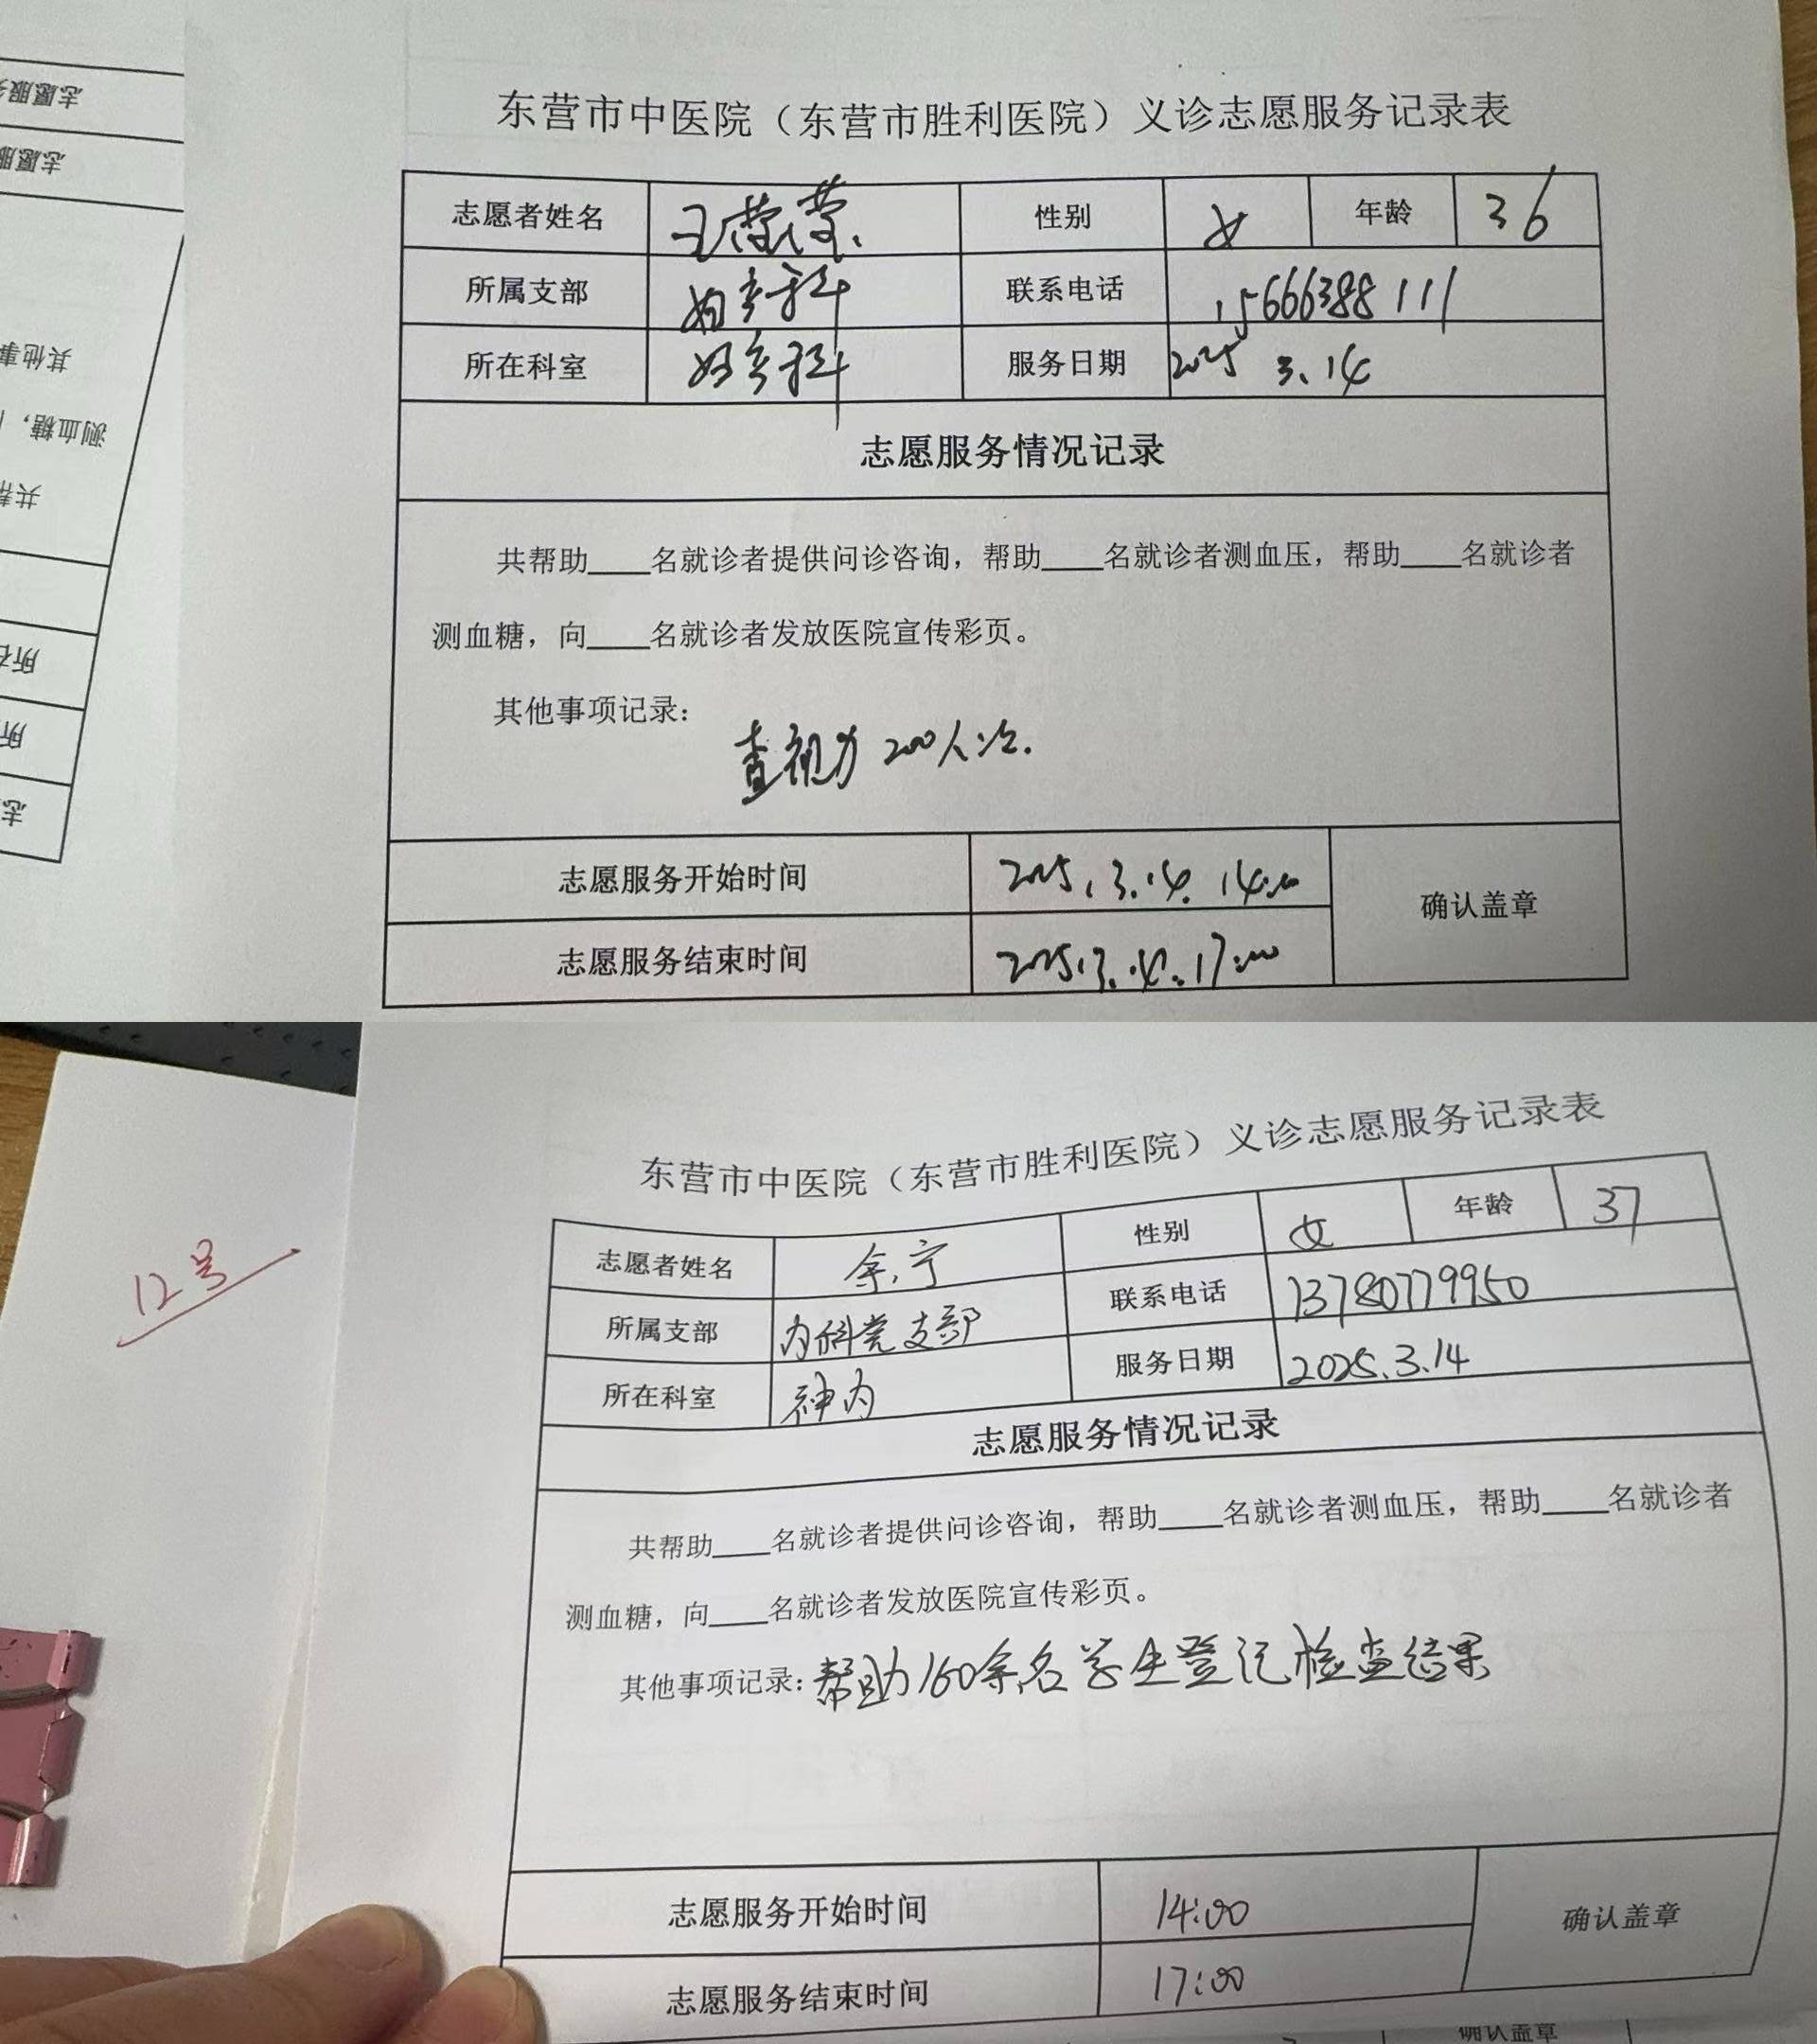 志愿服务
志愿服
其他事
测血糖，
共帮
所在
所
志
东营市中医院（东营市胜利医院）义诊志愿服务记录表
志愿者姓名 王莹莹 性别 女 年龄 36
所属支部 妇产科 联系电话 15666388111
所在科室 妇产科 服务日期 2025 3.14
志愿服务情况记录
共帮助____名就诊者提供问诊咨询，帮助____名就诊者测血压，帮助____名就诊者
测血糖，向____名就诊者发放医院宣传彩页。
其他事项记录：
查视力 200人次.
志愿服务开始时间 2025.3.14. 14:00
确认盖章
志愿服务结束时间 2025.3.14.17:00
12号
东营市中医院（东营市胜利医院）义诊志愿服务记录表
志愿者姓名 余宁 性别 女 年龄 37
所属支部 内科党支部 联系电话 13780779950
所在科室 神内 服务日期 2025.3.14
志愿服务情况记录
共帮助____名就诊者提供问诊咨询，帮助____名就诊者测血压，帮助____名就诊者
测血糖，向____名就诊者发放医院宣传彩页。
其他事项记录：帮助160余名学生登记检查结果
志愿服务开始时间 14:00
确认盖章
志愿服务结束时间 17:00
确认盖章